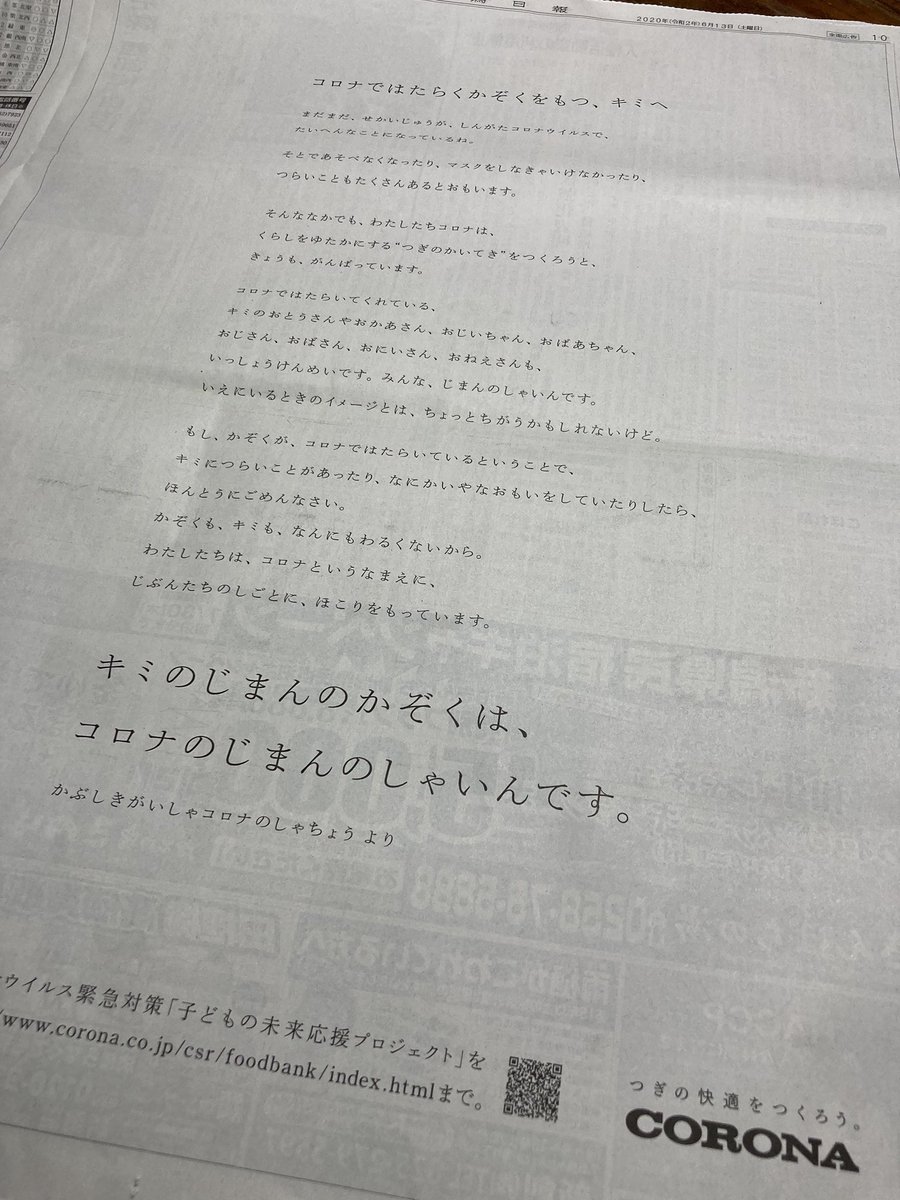 日報
2020年(令和2年)6月13日(土曜日)
全面広告
10
コロナではたらくかぞくをもつ、キミへ
まだまだ、せかいじゅうが、しんがたコロナウイルスで、
たいへんなことになっているね。
そとであそべなくなったり、マスクをしなきゃいけなかったり、
つらいこともたくさんあるとおもいます。
そんななかでも、わたしたちコロナは、
くらしをゆたかにする“つぎのかいてき”をつくろうと、
きょうも、がんばっています。
コロナではたらいてくれている、
キミのおとうさんやおかあさん、おじいちゃん、おばあちゃん、
おじさん、おばさん、おにいさん、おねえさんも、
いっしょうけんめいです。みんな、じまんのしゃいんです。
いえにいるときのイメージとは、ちょっとちがうかもしれないけど。
もし、かぞくが、コロナではたらいているということで、
キミにつらいことがあったり、なにかいやなおもいをしていたりしたら、
ほんとうにごめんなさい。
かぞくも、キミも、なんにもわるくないから。
わたしたちは、コロナというなまえに、
じぶんたちのしごとに、ほこりをもっています。
キミのじまんのかぞくは、
コロナのじまんのしゃいんです。
かぶしきがいしゃコロナのしゃちょう より
ウイルス緊急対策「子どもの未来応援プロジェクト」を
/www.corona.co.jp/csr/foodbank/index.htmlまで。
つぎの快適をつくろう。
CORONA